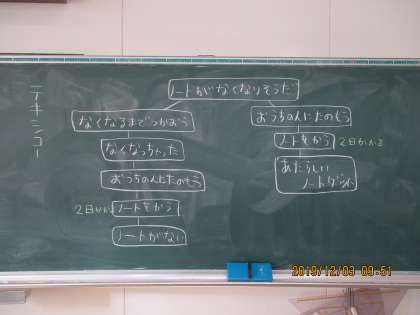 ノートがなくなりそうだ
なくなるまでつかおう
なくなっちゃった
おうちの人にたのもう
2日かかる
ノートをかう
ノートがない
おうちの人にたのもう
ノートをかう
2日かかる
あたらしい
ノートゲット
2019/12/03 09:51